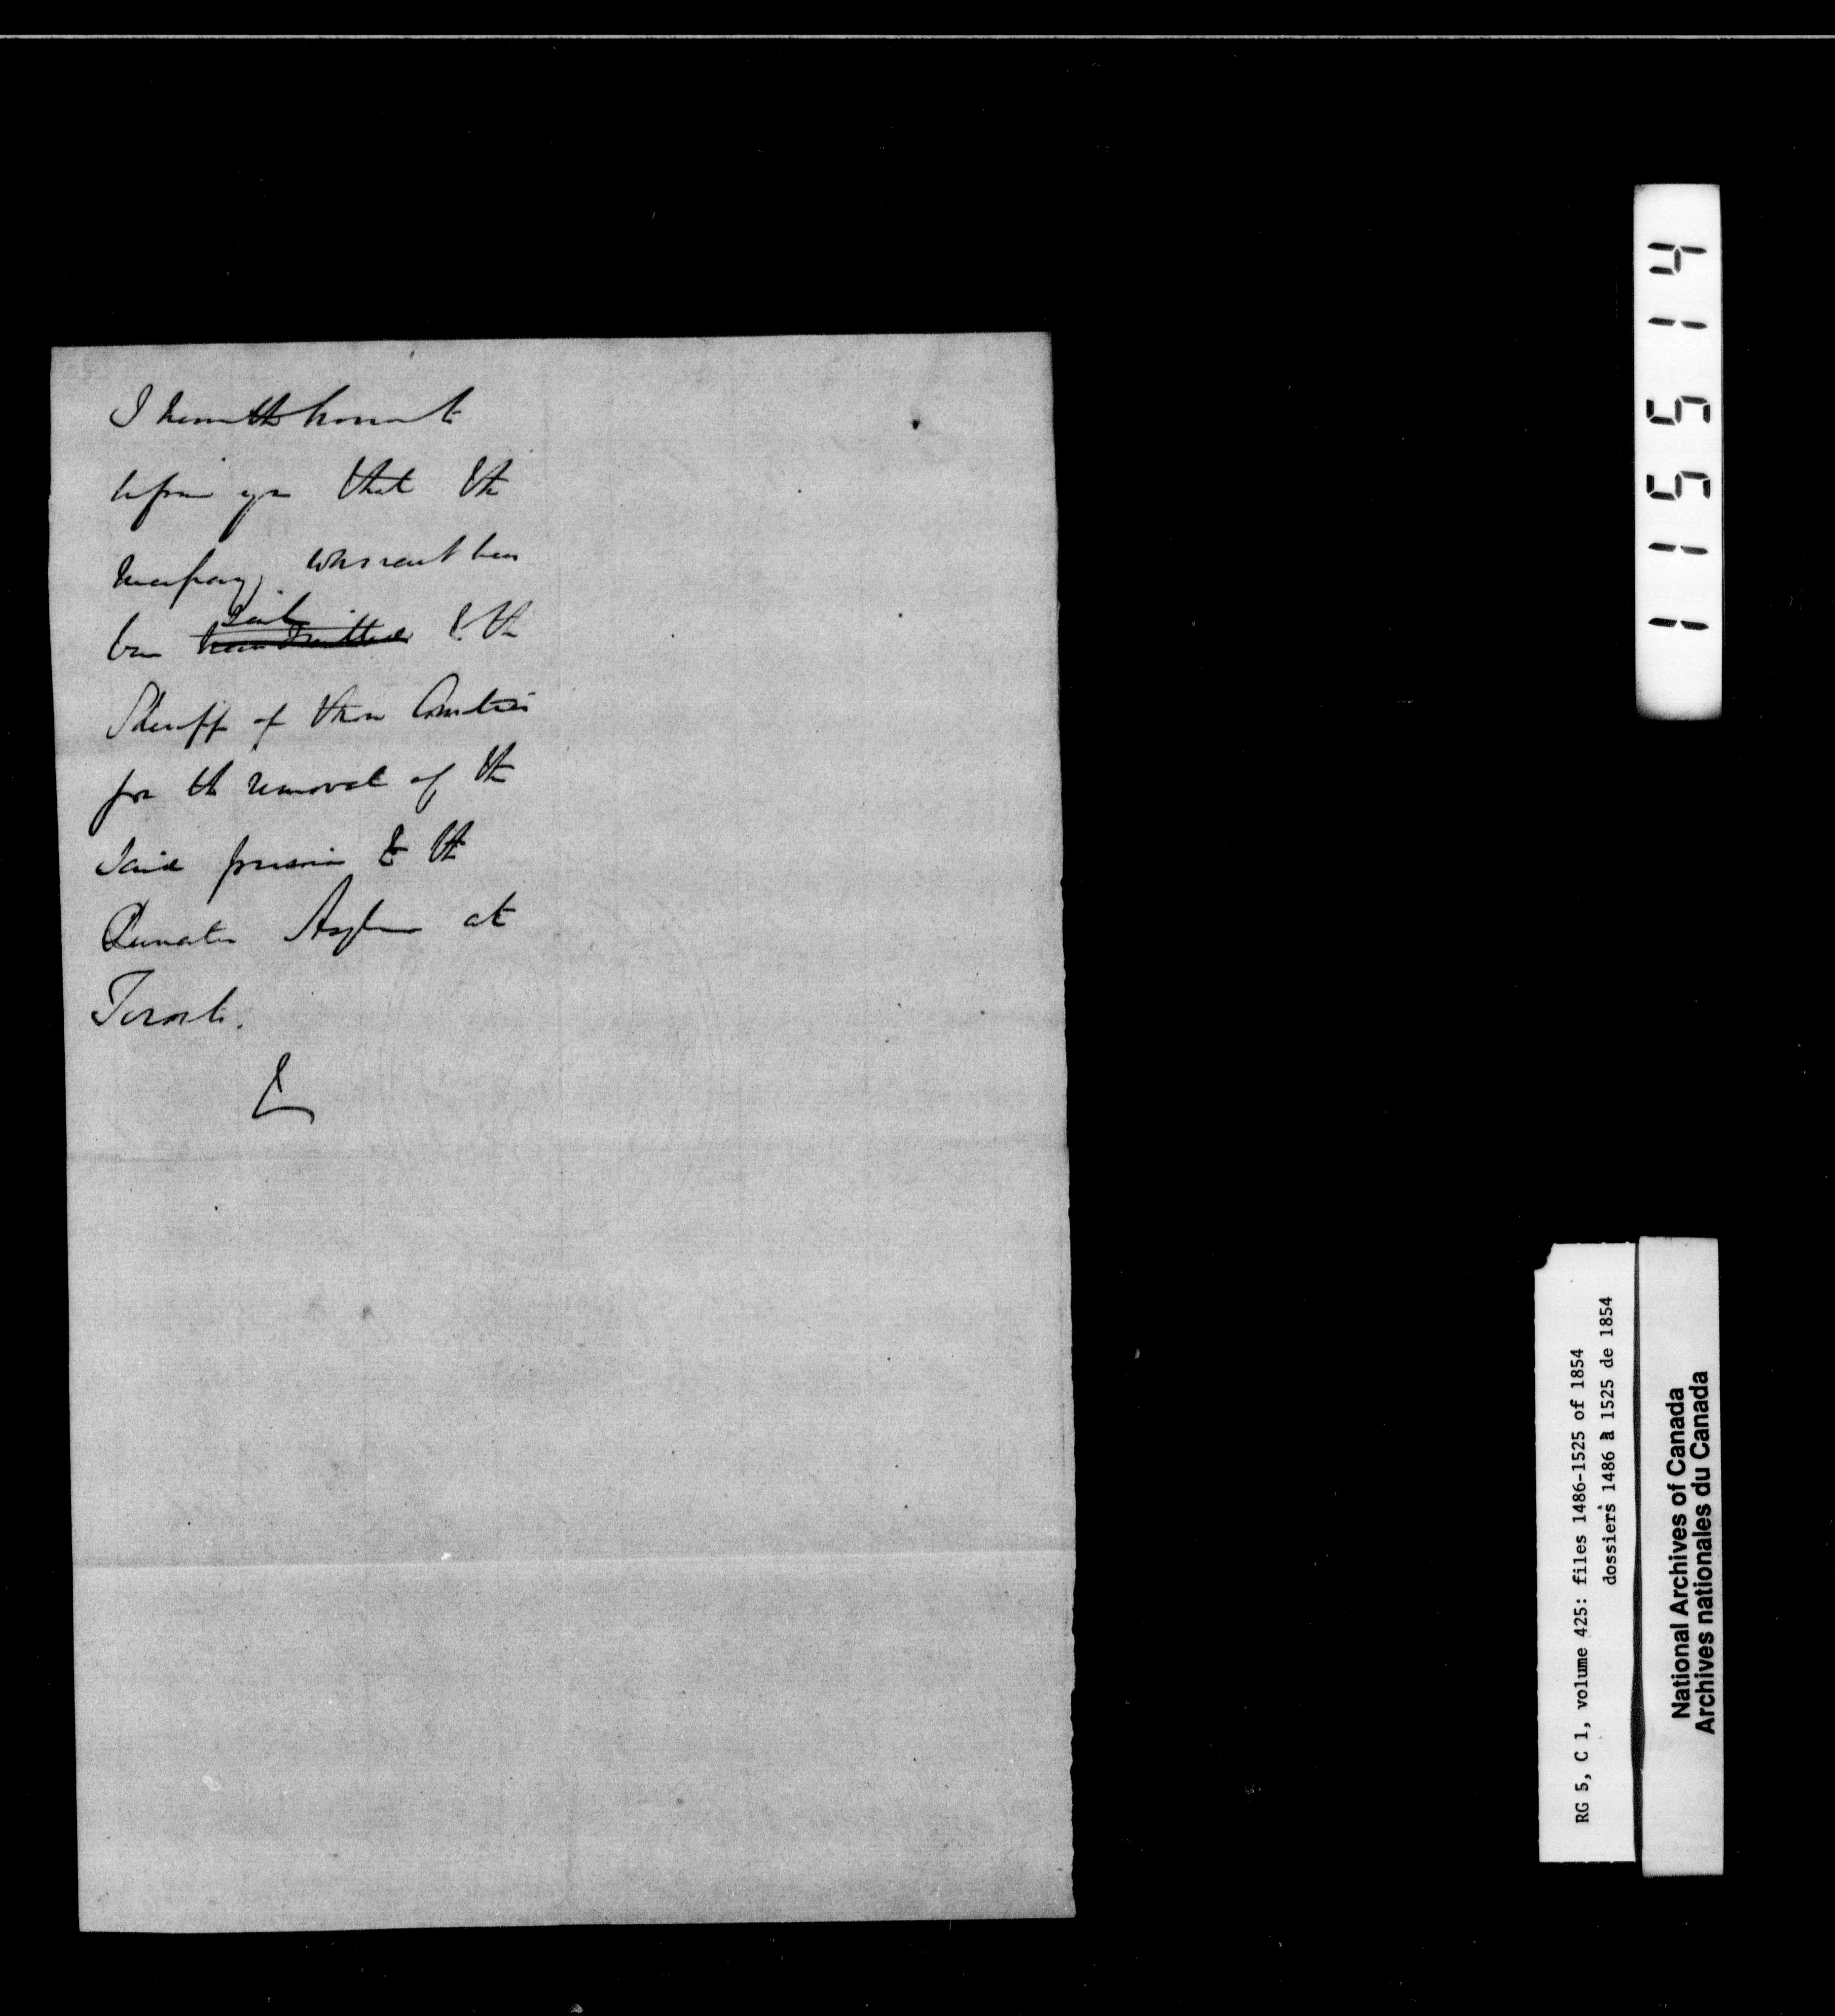 I have the honor to
inform you that the
necessary warrant has
been sent transmitted to the
Sheriff of these Counties
for the removal of the
said prisoner to the
Lunatic Asylum at
Toronto.
1 1 5 5 1 4
RG 5, C 1, volume 425: files 1486-1525 of 1854
dossiers 1486 à 1525 de 1854
National Archives of Canada
Archives nationales du Canada